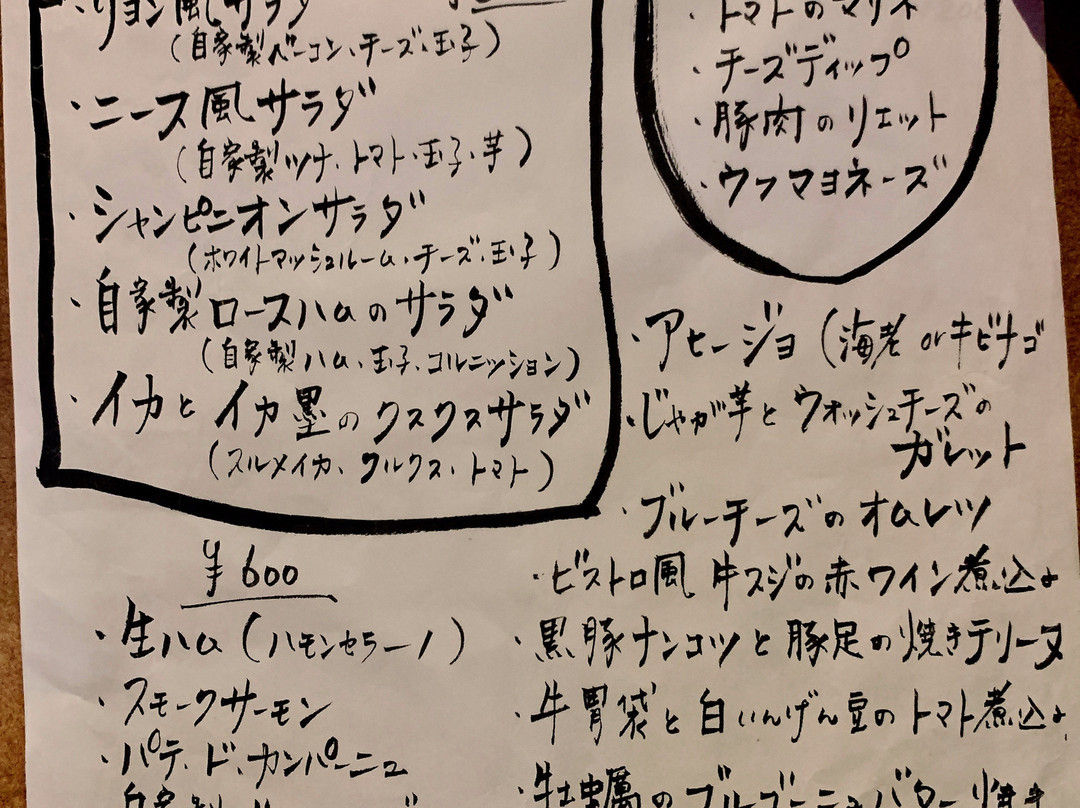 ・リヨン風サラダ
(自家製ベーコン、チーズ、玉子)
・ニース風サラダ
(自家製ツナ、トマト・玉子・芋)
・シャンピニオンサラダ
(ホワイトマッシュルーム、チーズ、玉子)
・自家製ロースハムのサラダ
(自家製ハム、玉子、コルニッション)
・イカとイカ墨のクスクスサラダ
(スルメイカ、クルクス・トマト)
¥600
・生ハム(ハモンセラーノ)
・スモークサーモン
・パテ・ド・カンパーニュ
トマトのマリネ
・チーズディップ
・豚肉のリエット
・ウフマヨネーズ
・アヒージョ(海老orキビナゴ
・じゃが芋とウォッシュチーズの
ガレット
・ブルーチーズのオムレツ
・ビストロ風牛スジの赤ワイン煮込み
・黒豚ナンコツと豚足の焼きテリーヌ
・牛胃袋と白いんげん豆のトマト煮込み
・牡蠣のブルゴーニュバター焼き